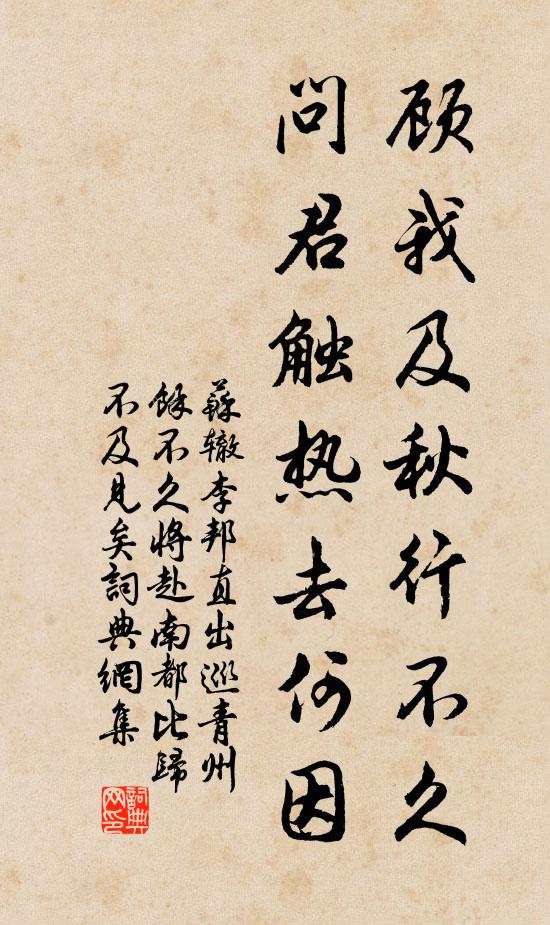 顾我及秋行不久
问君触热去何因
蘇辙李邦直出巡青州
餘不久將赴南都比歸
不及見矣詞典網集
詞典
网印